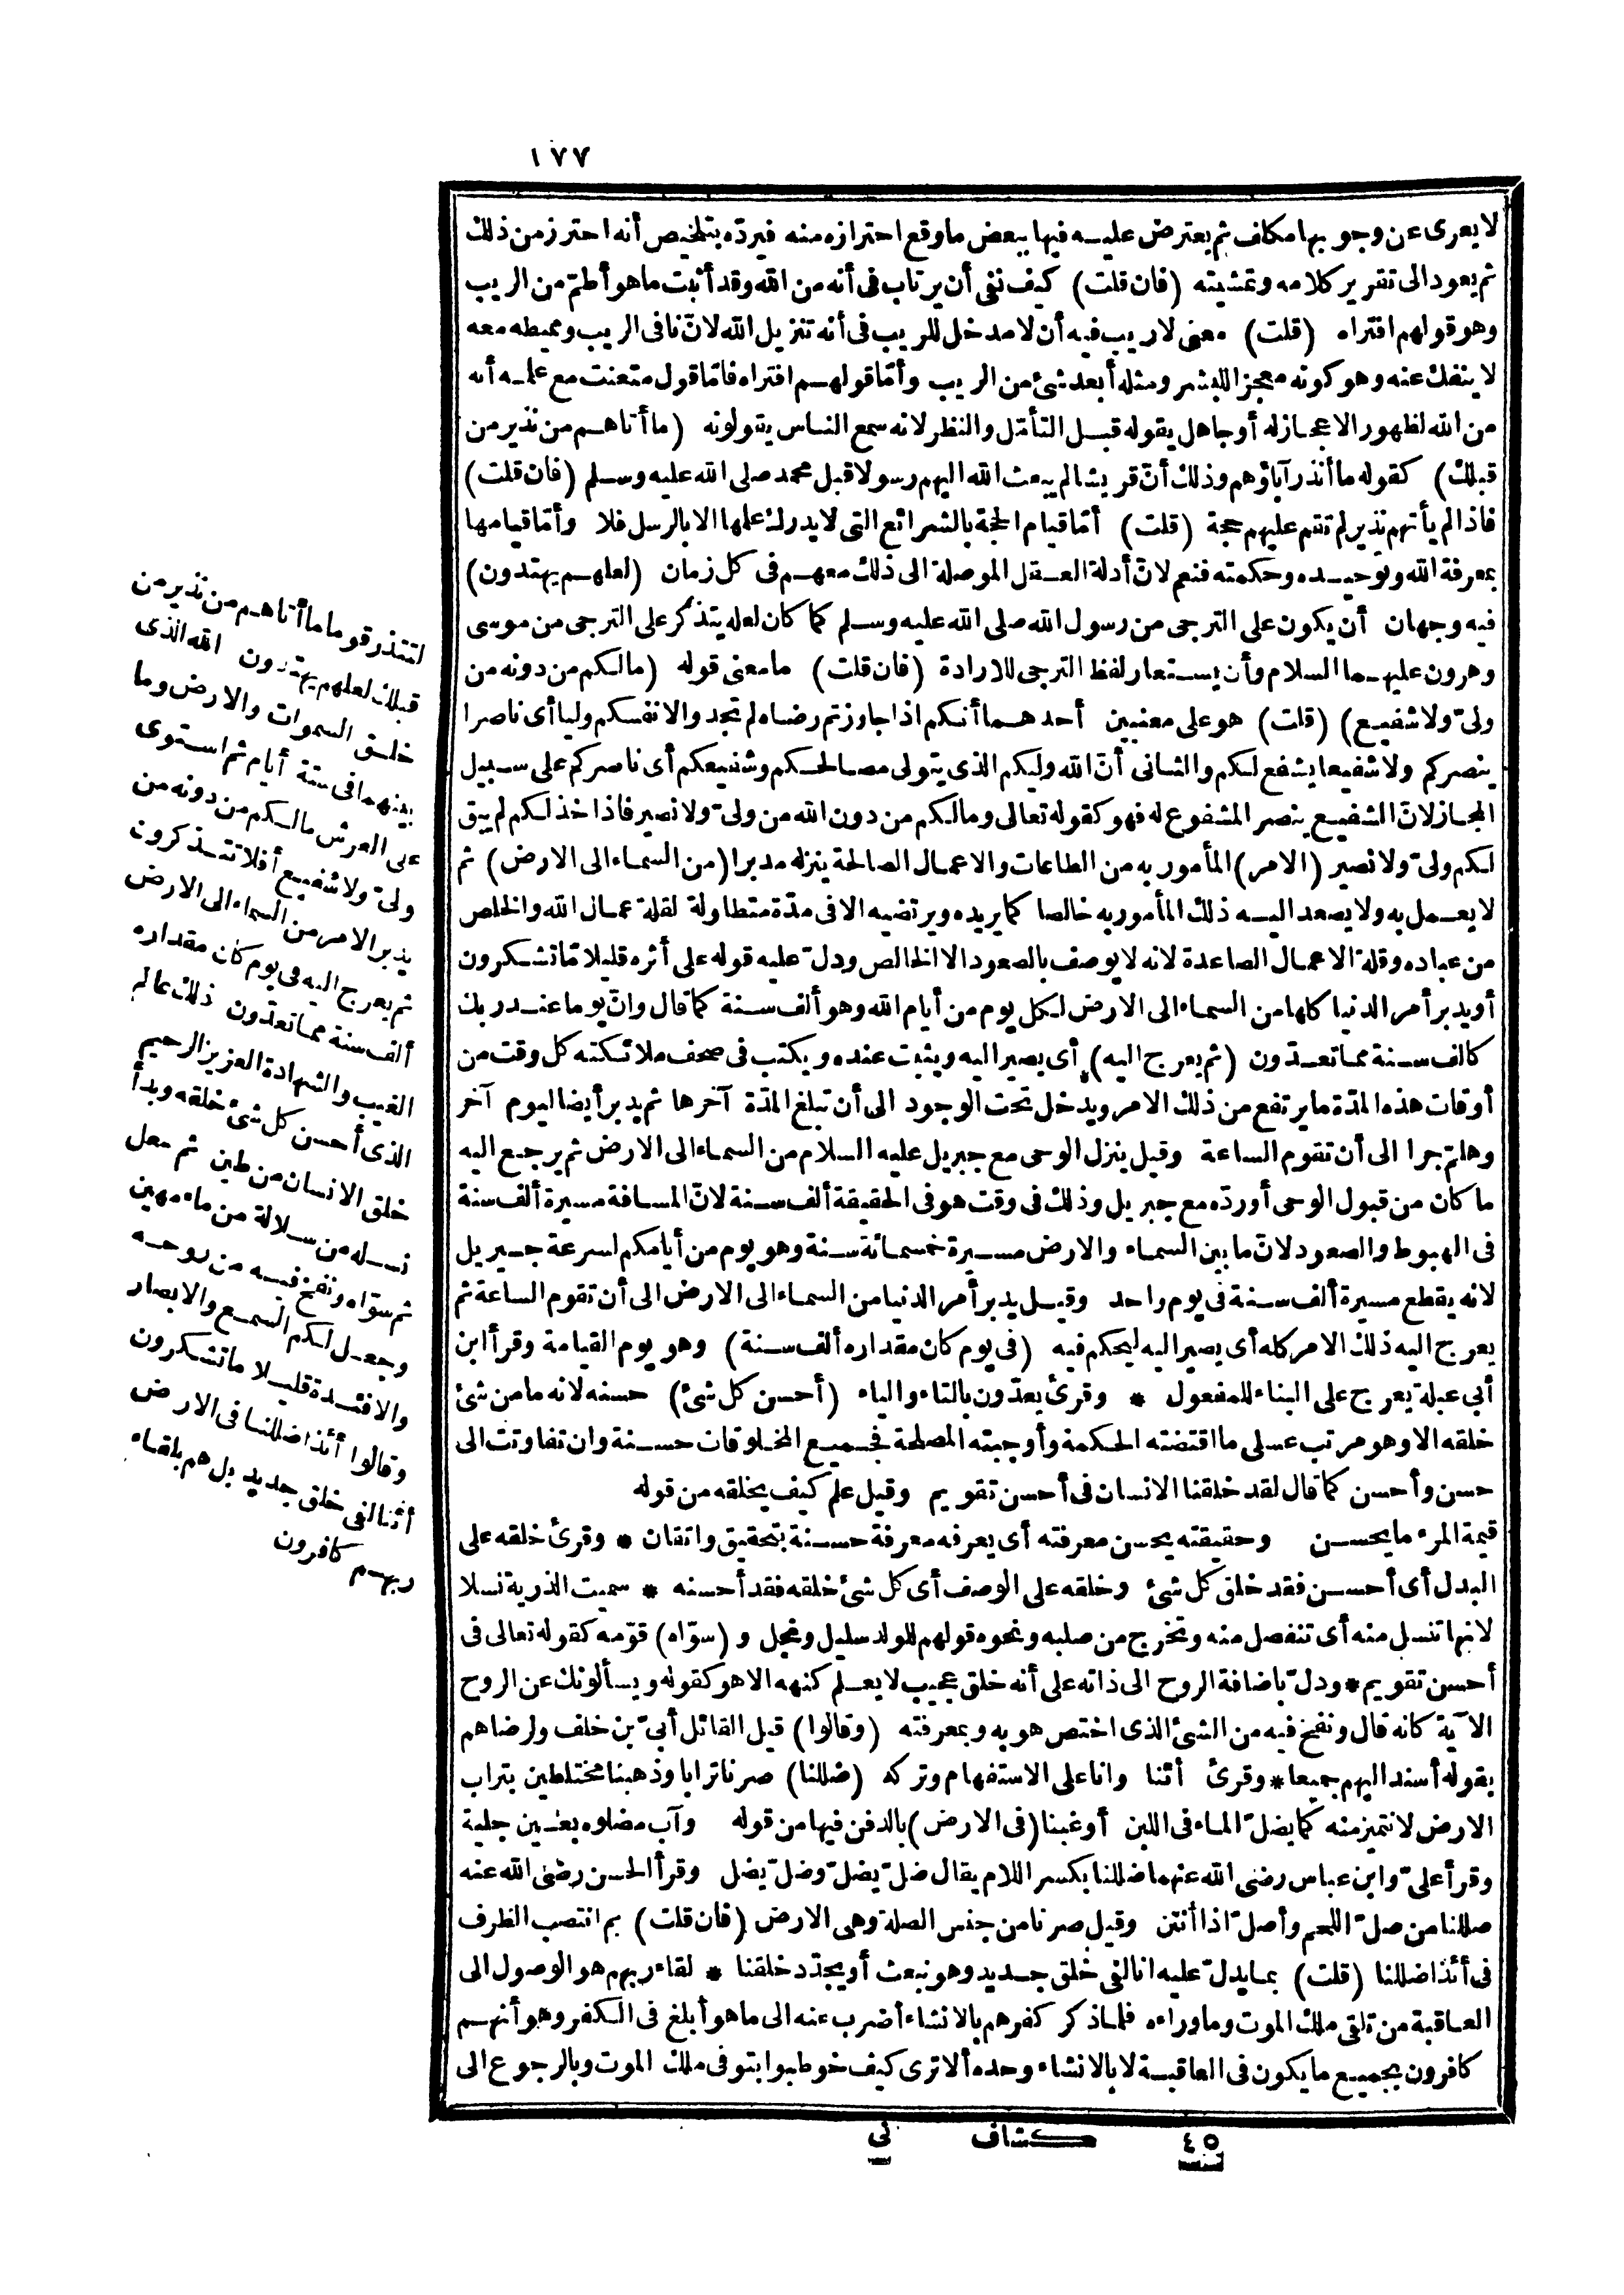 ١٧٧
لا يعرى عن وجوبها مكلف ثم يعترض عليه فيها ببعض ما وقع احترازه منه فيردّه بتلخيص أنه احترز من ذلك
ثم يعود الى تقرير كلامه وتمشيته (فان قلت) كيف نفى أن يرتاب فى أنه من الله وقد أثبت ما هو أطمّ من الريب
وهو قولهم افتراه (قلت) معنى لا ريب فيه أن لا مدخل للريب فى أنه تنزيل الله لانّ نافى الريب ومميطه معه
لا ينفك عنه وهو كونه معجزا للبشر ومثله أبعد شئ من الريب وأمّا قولهم افتراه فامّا قول متعنت مع علمه أنه
من الله لظهور الاعجاز له أو جاهل يقوله قبل التأمّل والنظر لانه سمع الناس يقولونه (ما أتاهم من نذير من
قبلك) كقوله ما أنذر آباؤهم وذلك أنّ قريشا لم يبعث الله اليهم رسولا قبل محمد صلى الله عليه وسلم (فان قلت)
فاذا لم يأتهم نذير لم تقم عليهم حجة (قلت) أمّا قيام الحجة بالشرائع التى لا يدرك علمها الا بالرسل فلا وأمّا قيامها
بمعرفة الله وتوحيده وحكمته فنعم لانّ أدلة العقل الموصلة الى ذلك معهم فى كل زمان (لعلهم يهتدون)
فيه وجهان أن يكون على الترجى من رسول الله صلى الله عليه وسلم كما كان لعله يتذكر على الترجى من موسى
وهرون عليهما السلام وأن يستعار لفظ الترجى للارادة (فان قلت) ما معنى قوله (مالكم من دونه من
ولىّ ولا شفيع) (قلت) هو على معنيين أحدهما أنكم اذا جاوزتم رضاه لم تجدوا لانفسكم وليا أى ناصرا
ينصركم ولا شفيعا يشفع لكم والثانى أنّ الله وليكم الذى يتولى مصالحكم وشفيعكم أى ناصركم على سبيل
المجاز لانّ الشفيع ينصر المشفوع له فهو كقوله تعالى ومالكم من دون الله من ولىّ ولا نصير فاذا خذلكم لم يبق
لكم ولىّ ولا نصير (الامر) المأمور به من الطاعات والاعمال الصالحة ينزله مدبرا (من السماء الى الارض) ثم
لا يعمل به ولا يصعد اليه ذلك المأمور به خالصا كما يريده ويرتضيه الا فى مدّة متطاولة لقلة عمال الله والخلص
من عباده وقلة الاعمال الصاعدة لانه لا يوصف بالصعود الا الخالص ودلّ عليه قوله على أثره قليلا مّا تشكرون
أو يدبر أمر الدنيا كلها من السماء الى الارض لكل يوم من أيام الله وهو ألف سنة كما قال وانّ يوما عند ربك
كألف سنة مما تعدّون (ثم يعرج اليه) أى يصير اليه ويثبت عنده ويكتب فى صحف ملائكته كل وقت من
أوقات هذه المدّة ما يرتفع من ذلك الامر ويدخل تحت الوجود الى أن تبلغ المدّة آخرها ثم يدبر أيضا ليوم آخر
وهلمّ جرا الى أن تقوم الساعة وقيل ينزل الوحى مع جبريل عليه السلام من السماء الى الارض ثم يرجع اليه
ما كان من قبول الوحى أو ردّه مع جبريل وذلك فى وقت هو فى الحقيقة ألف سنة لانّ المسافة مسيرة ألف سنة
فى الهبوط والصعود لانّ ما بين السماء والارض مسيرة خمسمائة سنة وهو يوم من أيامكم لسرعة جبريل
لانه يقطع مسيرة ألف سنة فى يوم واحد وقيل يدبر أمر الدنيا من السماء الى الارض الى أن تقوم الساعة ثم
يعرج اليه ذلك الامر كله أى يصير اليه ليحكم فيه (فى يوم كان مقداره ألف سنة) وهو يوم القيامة وقرأ ابن
أبى عبلة يعرج على البناء للمفعول * وقرئ يعدّون بالتاء والياء (أحسن كل شئ) حسنه لانه ما من شئ
خلقه الا وهو مرتب على ما اقتضته الحكمة وأوجبته المصلحة فجميع المخلوقات حسنة وان تفاوتت الى
حسن وأحسن كما قال لقد خلقنا الانسان فى أحسن تقويم وقيل علم كيف يخلقه من قوله
قيمة المرء ما يحسن وحقيقته يحسن معرفته أى يعرفه معرفة حسنة بتحقيق واتقان * وقرئ خلقه على
البدل أى أحسن فقد خلق كل شئ وخلقه على الوصف أى كل شئ خلقه فقد أحسنه * سميت الذرية نسلا
لانها تنسل منه أى تنفصل منه وتخرج من صلبه ونحوه قولهم للولد سليل ونجل و (سوّاه) قوّمه كقوله تعالى فى
أحسن تقويم * ودلّ باضافة الروح الى ذاته على أنه خلق عجيب لا يعلم كنهه الا هو كقوله ويسألونك عن الروح
الآية كانه قال ونفخ فيه من الشئ الذى اختص هو به وبمعرفته (وقالوا) قيل القائل أبىّ بن خلف ولرضاهم
بقوله أسند اليهم جميعا * وقرئ أئنا وانا على الاستفهام وتركه (ضللنا) صرنا ترابا وذهبنا مختلطين بتراب
الارض لا نتميز منه كما يضلّ الماء فى اللبن أو غبنا (فى الارض) بالدفن فيها من قوله وآب مضلوه بعين جلية
وقرأ علىّ وابن عباس رضى الله عنهما ضللنا بكسر اللام يقال ضلّ يضلّ وضلّ يضل وقرأ الحسن رضى الله عنه
صللنا من صلّ اللحم وأصلّ اذا أنتن وقيل صرنا من جنس الصلة وهى الارض (فان قلت) بم انتصب الظرف
فى أئذا ضللنا (قلت) بما يدلّ عليه انا لفى خلق جديد وهو نبعث أو يجدّد خلقنا * لقاء ربهم هو الوصول الى
العاقبة من تلقى ملك الموت وما وراءه فلما ذكر كفرهم بالانشاء أضرب عنه الى ما هو أبلغ فى الكفر وهو أنهم
كافرون بجميع ما يكون فى العاقبة لا بالانشاء وحده ألا ترى كيف خوطبوا بتوفى ملك الموت وبالرجوع الى
لتنذر قوما ما أتاهم من نذير من
قبلك لعلهم يهتدون الله الذى
خلق السموات والارض وما
بينهما فى ستة أيام ثم استوى
على العرش مالكم من دونه من
ولىّ ولا شفيع أفلا تتذكرون
يدبر الامر من السماء الى الارض
ثم يعرج اليه فى يوم كان مقداره
ألف سنة مما تعدّون ذلك عالم
الغيب والشهادة العزيز الرحيم
الذى أحسن كل شئ خلقه وبدأ
خلق الانسان من طين ثم جعل
نسله من سلالة من ماء مهين
ثم سوّاه ونفخ فيه من روحه
وجعل لكم السمع والابصار
والافئدة قليلا ما تشكرون
وقالوا أئذا ضللنا فى الارض
أئنا لفى خلق جديد بل هم بلقاء
ربهم كافرون
٤٥ كشاف نى